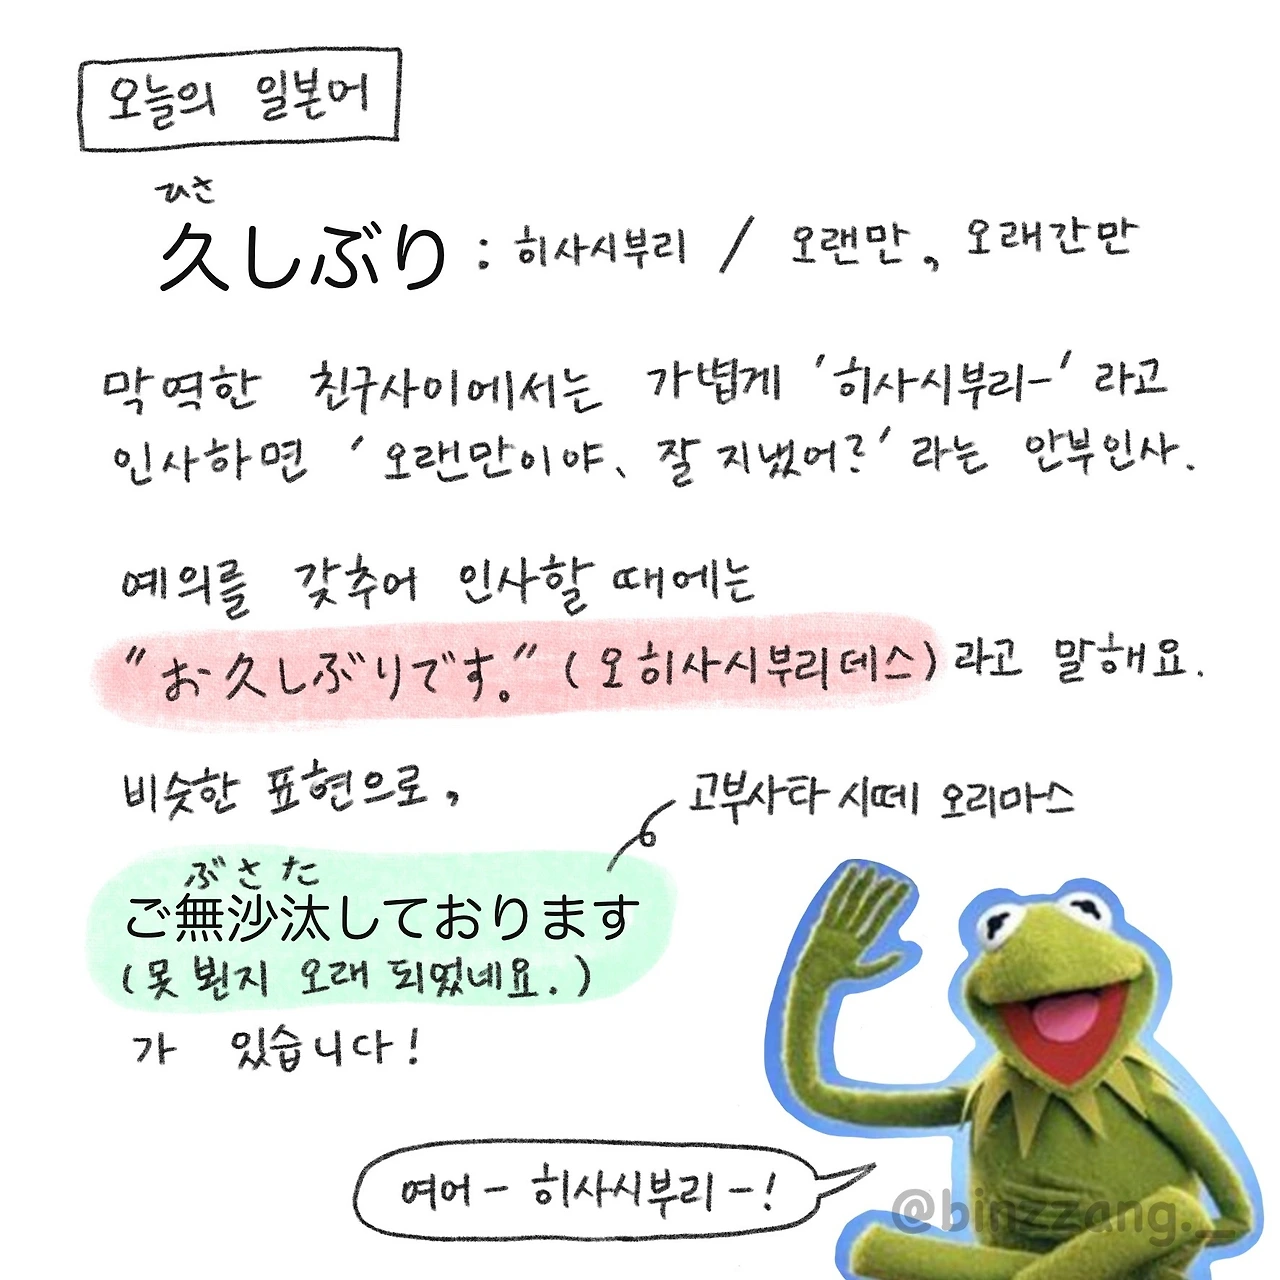 오늘의 일본어
ひさ
久しぶり : 히사시부리 / 오랜만, 오래간만
막역한 친구사이에서는 가볍게 '히사시부리-' 라고
인사하면 '오랜만이야、잘 지냈어?' 라는 안부인사.
예의를 갖추어 인사할 때에는
"お久しぶりです。" (오히사시부리데스) 라고 말해요.
비슷한 표현으로,
고부사타 시떼 오리마스
ぶさた
ご無沙汰しております
(못 뵌지 오래 되었네요.)
가 있습니다!
여어- 히사시부리-!
@binzzang._